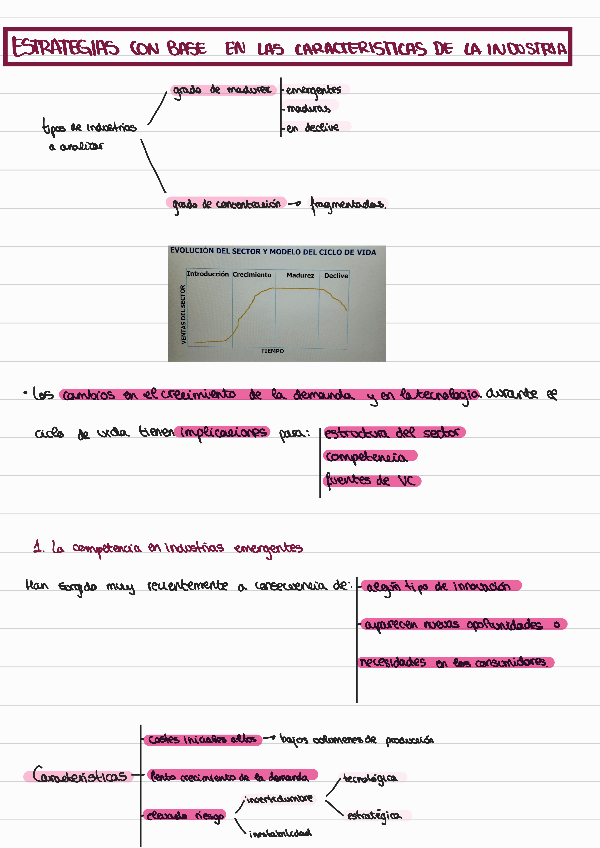 ESTRATEGIAS CON BASE EN LAS CARACTERISTICAS DE LA INDUSTRIA
tipos de industrias
a analizar
grado de madurez
emergentes
maduras
en declive
grado de concentración → fragmentadas.
EVOLUCIÓN DEL SECTOR Y MODELO DEL CICLO DE VIDA
Introducción Crecimiento Madurez Declive
VENTAS DEL SECTOR
TIEMPO
· Los cambios en el crecimiento de la demanda y en la tecnologia durante el
ciclo de vida tienen implicaciones para:
estructura del sector
competencia
fuentes de VC
1. La competencia en industrias emergentes
Han surgido muy recientemente a consecuencia de:
algún tipo de innovación
aparecen nuevas oportunidades o
necesidades en los consumidores
Características
costes iniciales altos → bajos volumenes de producción
lento crecimiento de la demanda
elevado riesgo
incertidumbre
tecnológica
estratégica
inestabilidad